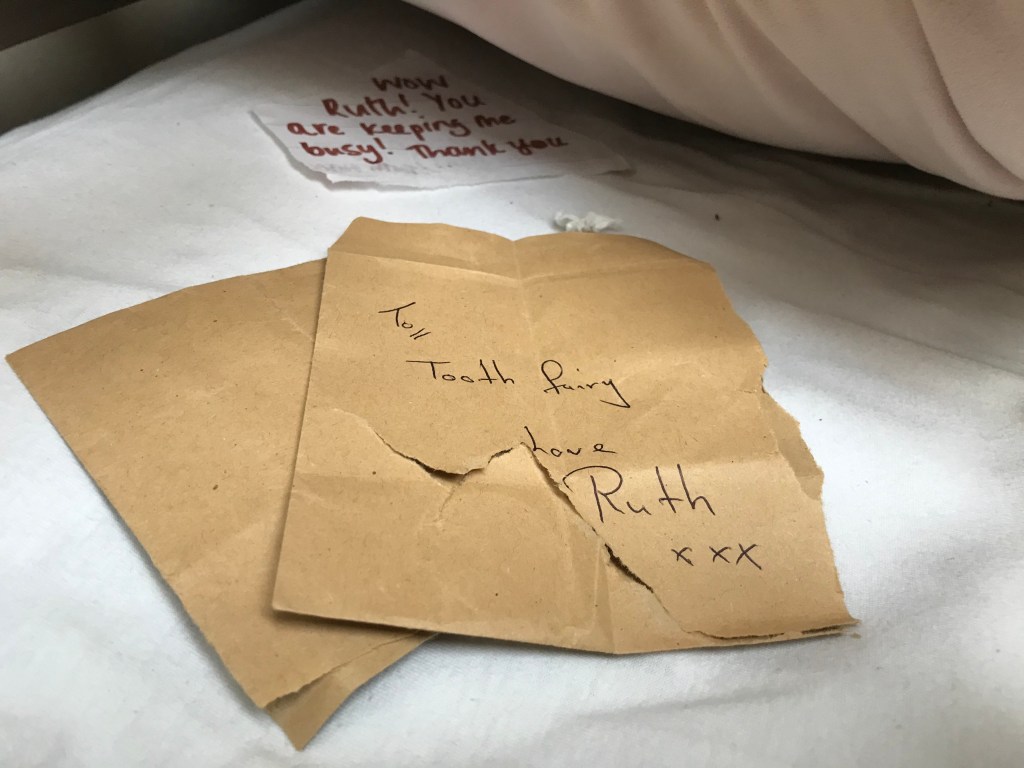 WOW
Ruth! You
are keeping me
busy! Thank you
To
Tooth fairy
Love
Ruth
x x x